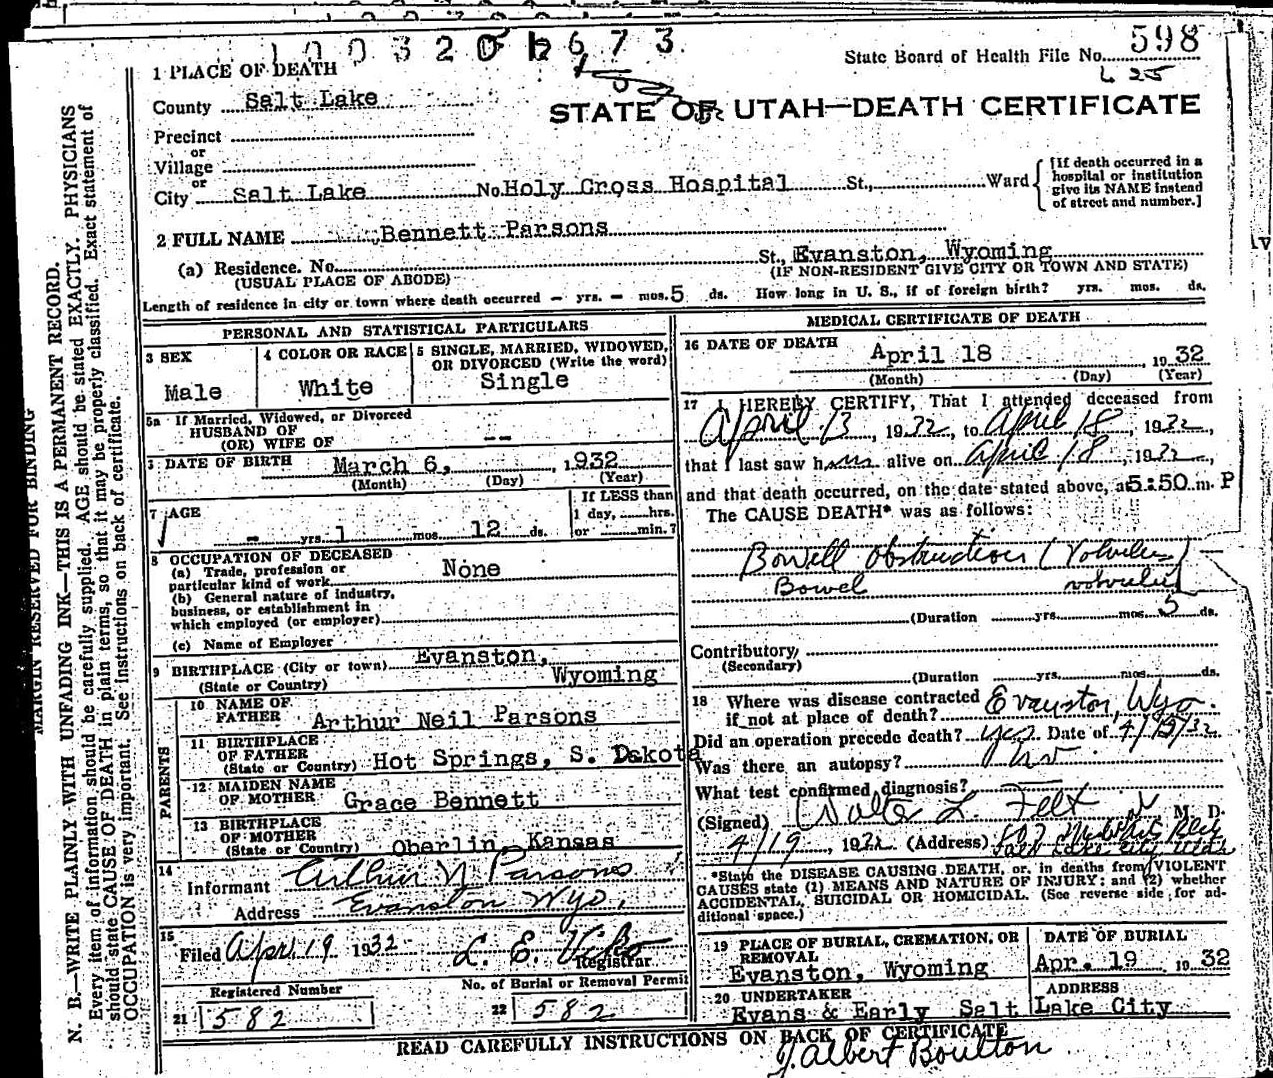 1 0 0 3 2 0 1 2 6 7 3
State Board of Health File No. 598
L 25
1 PLACE OF DEATH
County Salt Lake
STATE OF UTAH—DEATH CERTIFICATE
Precinct
or
Village
or
City Salt Lake No. Holy Cross Hospital St., Ward
[If death occurred in a
hospital or institution
give its NAME instead
of street and number.]
2 FULL NAME Bennett Parsons
(a) Residence. No. St., Evanston, Wyoming
(USUAL PLACE OF ABODE) (IF NON-RESIDENT GIVE CITY OR TOWN AND STATE)
Length of residence in city or town where death occurred — yrs. — mos. 5 ds. How long in U. S., if of foreign birth? yrs. mos. ds.
PERSONAL AND STATISTICAL PARTICULARS
3 SEX
Male
4 COLOR OR RACE
White
5 SINGLE, MARRIED, WIDOWED,
OR DIVORCED (Write the word)
Single
5a If Married, Widowed, or Divorced
HUSBAND OF
(OR) WIFE OF --
DATE OF BIRTH March 6, 1932
(Month) (Day) (Year)
7 AGE
- yrs. 1 mos. 12 ds.
If LESS than
1 day, hrs.
or min.?
8 OCCUPATION OF DECEASED
(a) Trade, profession or
particular kind of work None
(b) General nature of industry,
business, or establishment in
which employed (or employer)
(c) Name of Employer
9 BIRTHPLACE (City or town) Evanston,
(State or Country) Wyoming
PARENTS
10 NAME OF
FATHER Arthur Neil Parsons
11 BIRTHPLACE
OF FATHER
(State or Country) Hot Springs, S. Dakota
12 MAIDEN NAME
OF MOTHER Grace Bennett
13 BIRTHPLACE
OF MOTHER
(State or Country) Oberlin, Kansas
14
Informant Arthur N Parsons
Address Evanston Wyo,
15
Filed Apr. 19 1932 L. E.
Registrar
Registered Number
21 582
No. of Burial or Removal Permit
22 582
MEDICAL CERTIFICATE OF DEATH
16 DATE OF DEATH April 18 1932
(Month) (Day) (Year)
17 I HEREBY CERTIFY, That I attended deceased from
April 13, 1932, to April 18, 1932,
that I last saw him alive on April 18, 1932,
and that death occurred, on the date stated above, at 5:50 m. P
The CAUSE DEATH* was as follows:
Bowell Obstruction (Volvulus)
Bowel volvulus
(Duration yrs. mos. 5 ds.
Contributory
(Secondary)
(Duration yrs. mos. ds.
18 Where was disease contracted
if not at place of death? Evanston, Wyo.
Did an operation precede death? yes. Date of 4/13/32
Was there an autopsy? no
What test confirmed diagnosis?
(Signed) Walter L. Felt M. D.
4/19, 1932 (Address)
Salt Lake City Utah
*State the DISEASE CAUSING DEATH, or, in deaths from VIOLENT
CAUSES state (1) MEANS AND NATURE OF INJURY; and (2) whether
ACCIDENTAL, SUICIDAL OR HOMICIDAL. (See reverse side for ad-
ditional space.)
19 PLACE OF BURIAL, CREMATION, OR
REMOVAL
Evanston, Wyoming
DATE OF BURIAL
Apr. 19 1932
20 UNDERTAKER
Evans & Early Salt
ADDRESS
Lake City
READ CAREFULLY INSTRUCTIONS ON BACK OF CERTIFICATE
J. Albert Boulton
MARGIN RESERVED FOR BINDING
N. B.—WRITE PLAINLY WITH UNFADING INK—THIS IS A PERMANENT RECORD.
Every item of information should be carefully supplied. AGE should be stated EXACTLY. PHYSICIANS
should state CAUSE OF DEATH in plain terms, so that it may be properly classified. Exact statement of
OCCUPATION is very important. See instructions on back of certificate.